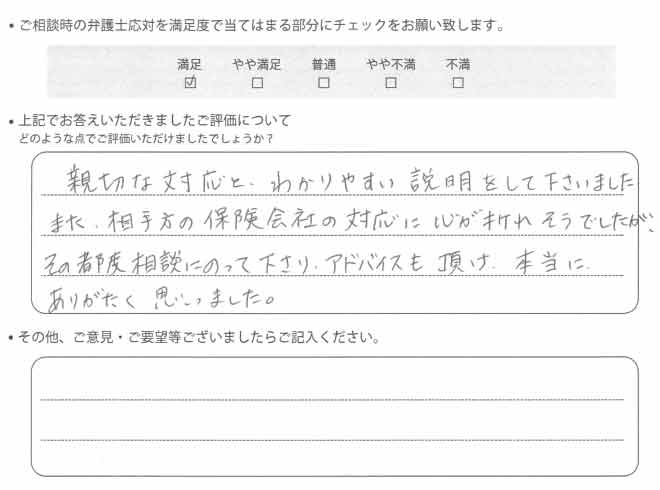 • ご相談時の弁護士応対を満足度で当てはまる部分にチェックをお願い致します。
満足 やや満足 普通 やや不満 不満
☑ ☐ ☐ ☐ ☐
• 上記でお答えいただきましたご評価について
どのような点でご評価いただけましたでしょうか?
親切な対応と、わかりやすい説明をして下さいました
また、相手方の保険会社の対応に心が折れそうでしたが、
その都度相談にのって下さり、アドバイスも頂け、本当に
ありがたく思いました。
• その他、ご意見・ご要望等ございましたらご記入ください。